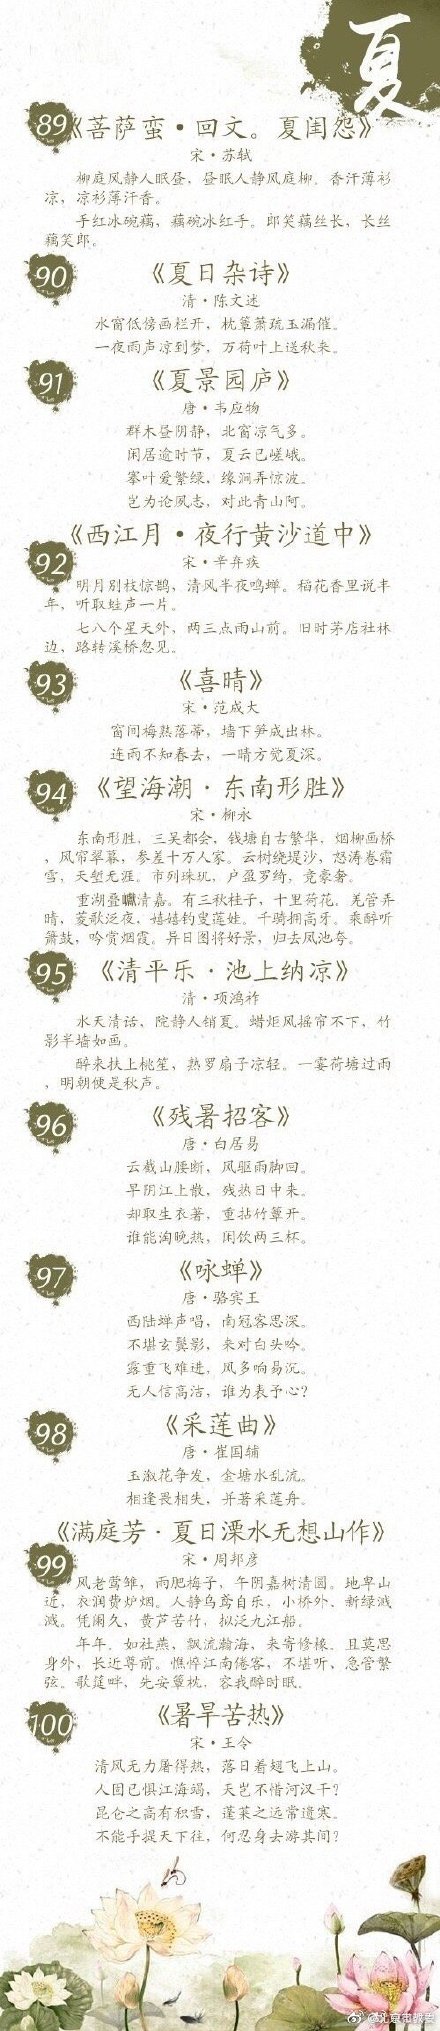 夏
89
《菩萨蛮·回文。夏闺怨》
宋·苏轼
柳庭风静人眠昼，昼眠人静风庭柳。香汗薄衫
凉，凉衫薄汗香。
手红冰碗藕，藕碗冰红手。郎笑藕丝长，长丝
藕笑郎。
90
《夏日杂诗》
清·陈文述
水窗低傍画栏开，枕簟萧疏玉漏催。
一夜雨声凉到梦，万荷叶上送秋来。
91
《夏景园庐》
唐·韦应物
群木昼阴静，北窗凉气多。
闲居逾时节，夏云已嵯峨。
搴叶爱繁绿，缘涧弄惊波。
岂为论夙志，对此青山阿。
《西江月·夜行黄沙道中》
92
宋·辛弃疾
明月别枝惊鹊，清风半夜鸣蝉。稻花香里说丰
年，听取蛙声一片。
七八个星天外，两三点雨山前。旧时茅店社林
边，路转溪桥忽见。
93
《喜晴》
宋·范成大
窗间梅熟落蒂，墙下笋成出林。
连雨不知春去，一晴方觉夏深。
94
《望海潮·东南形胜》
宋·柳永
东南形胜，三吴都会，钱塘自古繁华，烟柳画桥
，风帘翠幕，参差十万人家。云树绕堤沙，怒涛卷霜
雪，天堑无涯。市列珠玑，户盈罗绮，竞豪奢。
重湖叠巘清嘉。有三秋桂子，十里荷花。羌管弄
晴，菱歌泛夜，嬉嬉钓叟莲娃。千骑拥高牙。乘醉听
箫鼓，吟赏烟霞。异日图将好景，归去凤池夸。
95
《清平乐·池上纳凉》
清·项鸿祚
水天清话，院静人销夏。蜡炬风摇帘不下，竹
影半墙如画。
醉来扶上桃笙，熟罗扇子凉轻。一霎荷塘过雨
，明朝便是秋声。
96
《残暑招客》
唐·白居易
云截山腰断，风驱雨脚回。
早阴江上散，残热日中来。
却取生衣著，重拈竹簟开。
谁能淘晚热，闲饮两三杯。
97
《咏蝉》
唐·骆宾王
西陆蝉声唱，南冠客思深。
不堪玄鬓影，来对白头吟。
露重飞难进，风多响易沉。
无人信高洁，谁为表予心？
98
《采莲曲》
唐·崔国辅
玉溆花争发，金塘水乱流。
相逢畏相失，并著采莲舟。
《满庭芳·夏日溧水无想山作》
99
宋·周邦彦
风老莺雏，雨肥梅子，午阴嘉树清圆。地卑山
近，衣润费炉烟。人静乌鸢自乐，小桥外、新绿溅
溅。凭阑久，黄芦苦竹，拟泛九江船。
年年。如社燕，飘流瀚海，来寄修椽。且莫思
身外，长近尊前。憔悴江南倦客，不堪听、急管繁
弦。歌筵畔，先安簟枕，容我醉时眠。
100
《暑旱苦热》
宋·王令
清风无力屠得热，落日着翅飞上山。
人固已惧江海竭，天岂不惜河汉干？
昆仑之高有积雪，蓬莱之远常遗寒。
不能手提天下往，何忍身去游其间？